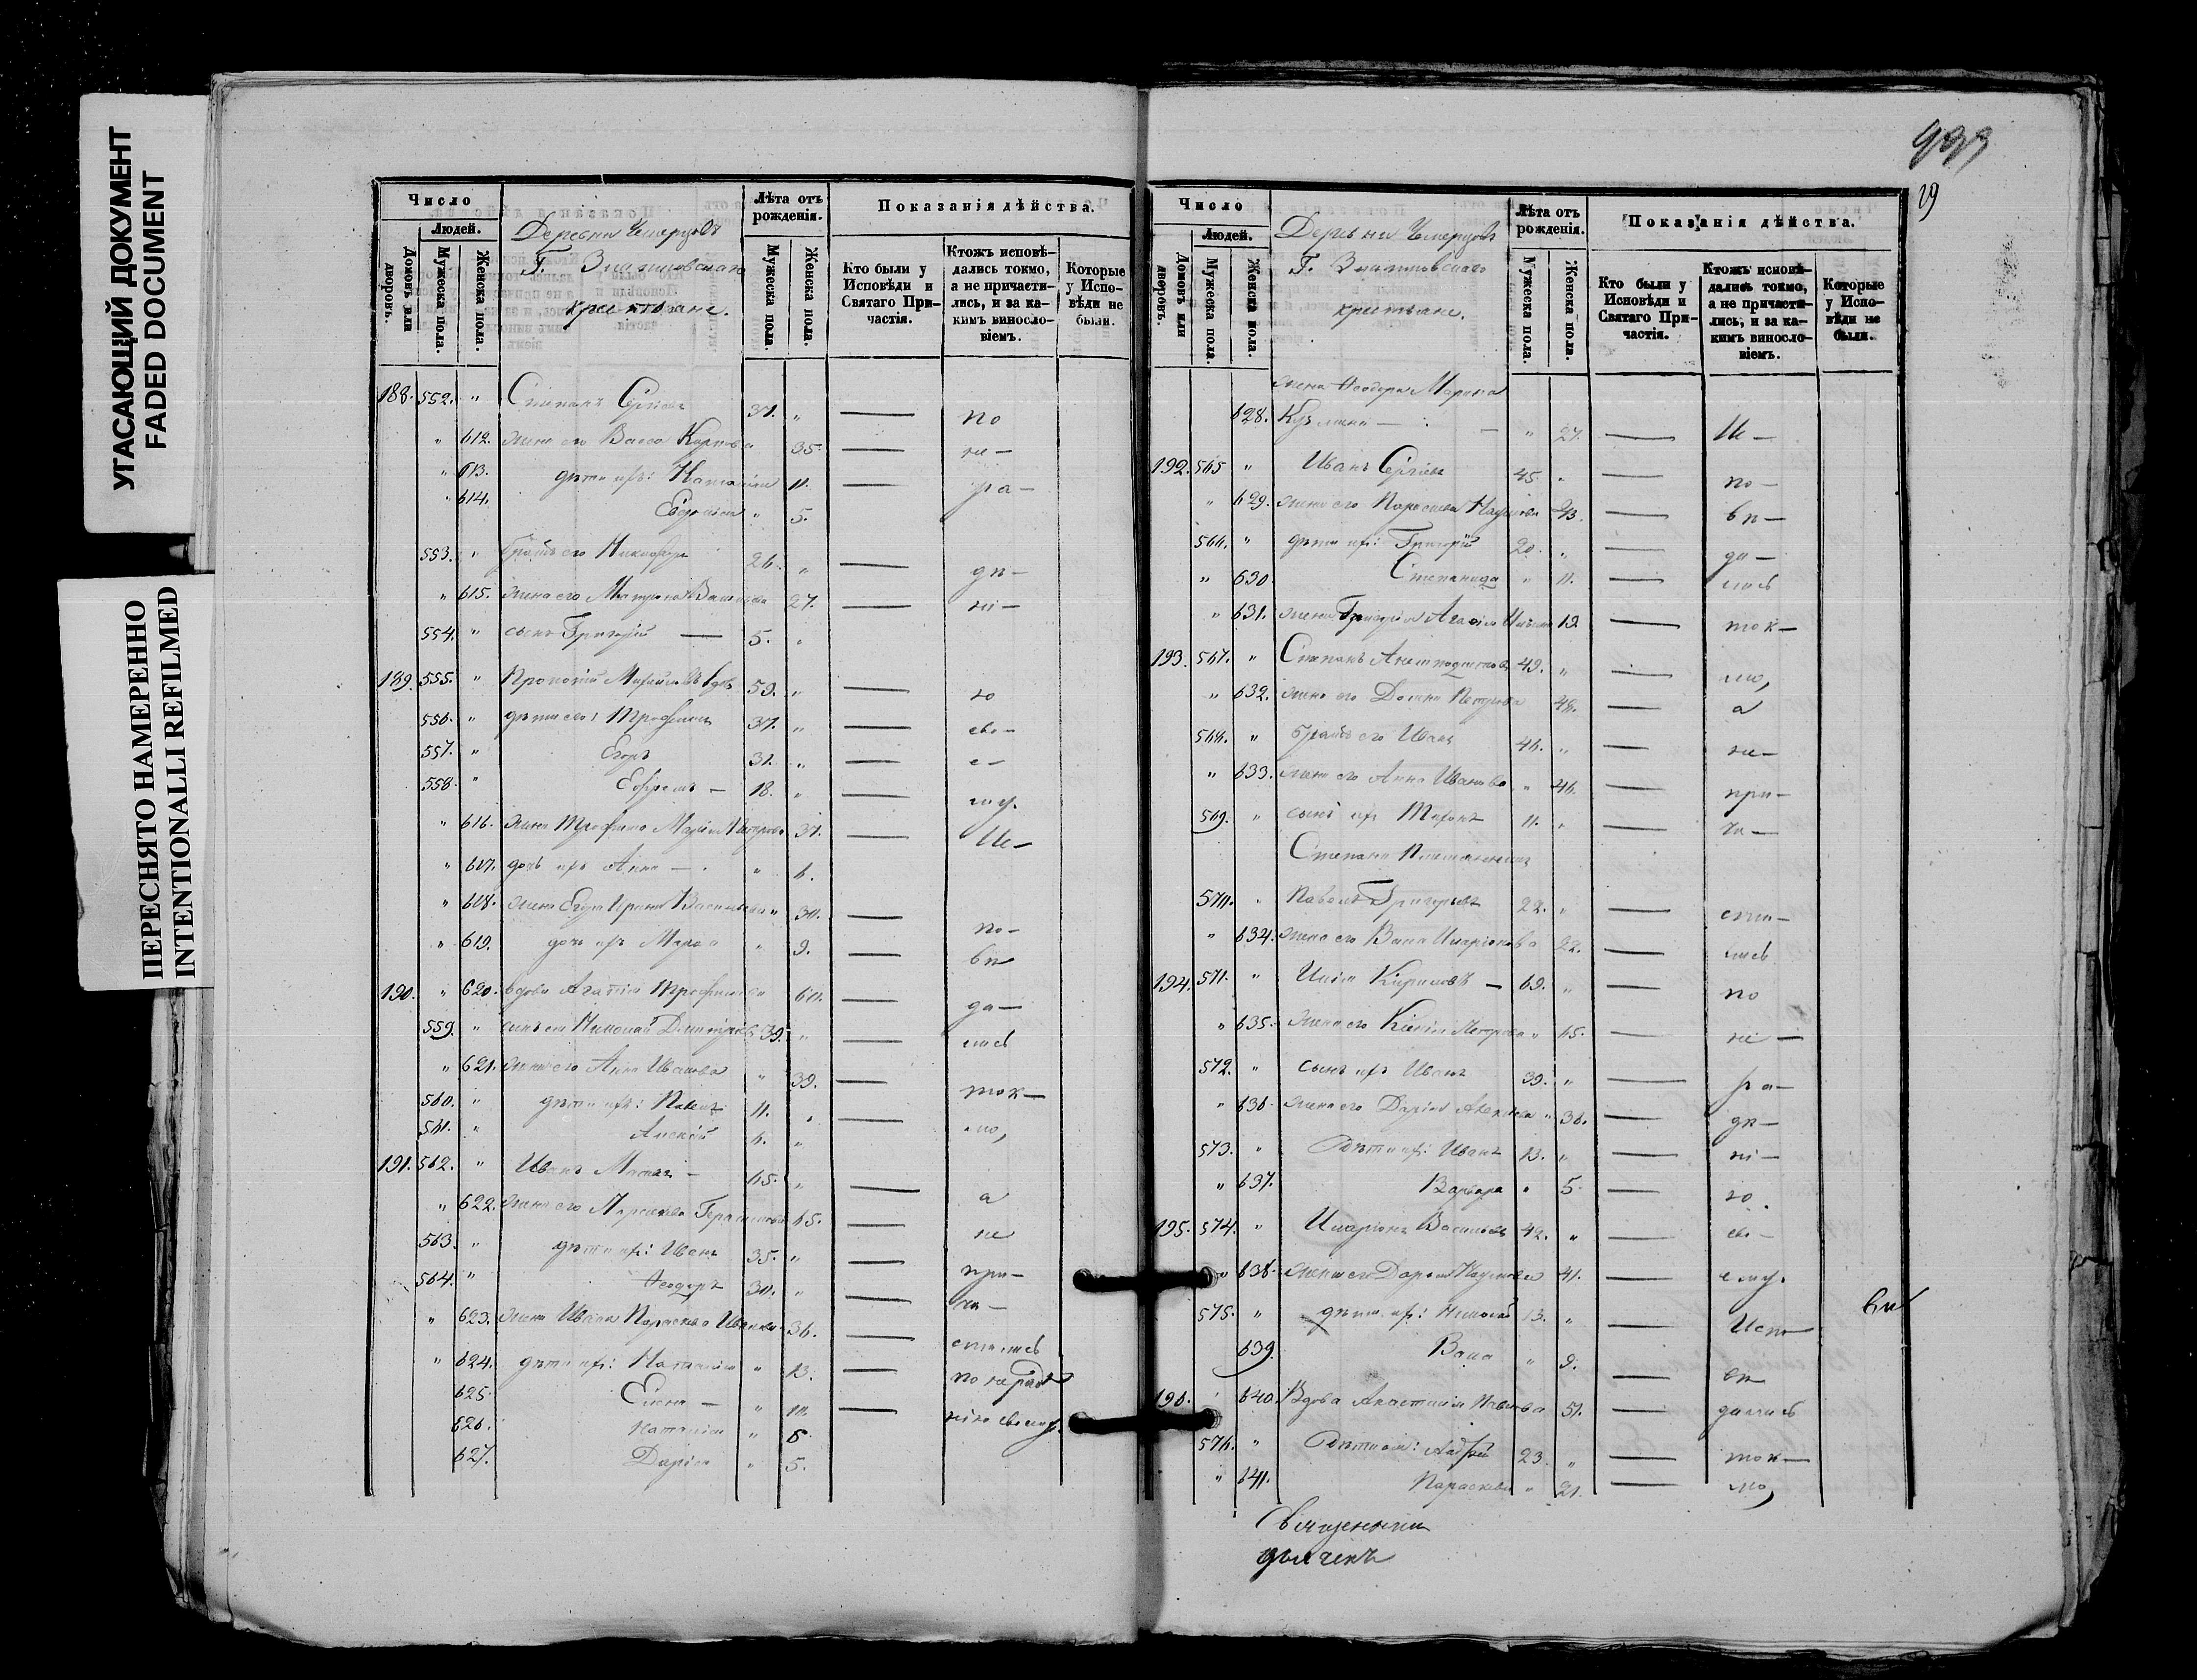 УГАСАЮЩИЙ ДОКУМЕНТ
FADED DOCUMENT
ПЕРЕСНЯТО НАМЕРЕННО
INTENTIONALLI REFILMED
Число
Людей.
Домовъ или дворовъ.
Мужеска пола.
Женска пола.
Деревни
Г.
крестьяне.
Лѣта отъ рожденія.
Мужеска пола.
Женска пола.
Показанія дѣйства.
Кто были у Исповѣди и Святаго Причастія.
Ктожъ исповѣдались токмо, а не причастились, и за какимъ винословіемъ.
Которые у Исповѣди не были.
188. 552. " Степанъ Сергѣевъ 37. " — по
" 612. жена его Васса Карпова 35. — не —
" 613. дѣти ихъ: Наталія 11. — ра —
" 614. Евдокія " 5.
553. " братъ его Никифоръ 26. " — дѣ —
" 615. жена его Матрона 27. — ні —
554. " сынъ Григорій — 5. "
189. 555. " Прокопій вдовъ 59. " — ю
556. " дѣти его: Трофимъ 37. " — сво —
557. " Егоръ 31. " — е —
558. " Ефремъ — 18. " — му.
" 616. жена Трофима Марія Петрова 37. — Ис —
" 617. дочь ихъ Анна — " 6.
" 618. жена Егора Ирина Васильева " 30. — по —
" 619. дочь ихъ Марѳа " 9. — вѣ
190. " 620. вдова Агафія Трофимова 60. — да —
559. " сынъ ея Николай Димитріевъ 39. " — лись
" 621. жена его Анна Иванова " 39. — ток —
560. " дѣти ихъ: Павелъ 11. " — мо,
561. " Алексій 6. "
191. 562. " Иванъ — 65. " — а
" 622. жена его Параскева Герасимова 65. — не
563. " дѣти ихъ: Иванъ 35. " — при —
564. " Ѳеодоръ 30. " — ча —
" 623. жена Ивана Параскева Иванова 36. — стились
" 624. дѣти ихъ: Наталія " 13. — по нерадѣ
625. Елена — " 10. — нію своему.
626. Наталія " 6.
627. Дарія " 5.
999
19
Число
Людей.
Домовъ или дворовъ.
Мужеска пола.
Женска пола.
Деревни
Г.
крестьяне.
Лѣта отъ рожденія.
Мужеска пола.
Женска пола.
Показанія дѣйства.
Кто были у Исповѣди и Святаго Причастія.
Ктожъ исповѣдались токмо, а не причастились, и за какимъ винословіемъ.
Которые у Исповѣди не были.
жена Ѳеодора Марина
628. Кузьмина — " 27. — Ис —
192. 565 " Иванъ Сергѣевъ 45. " — по —
" 629. жена его Параскева Наумова 43. — вѣ —
566. " дѣти ихъ: Григорій 20. " — да —
" 630. Степанида " 11. — лись
" 631. жена Григорія Агафія 19 — ток —
193. 567. " Степанъ 49. " — мо,
" 632. жена его Домна Петрова 48. — а
568. " братъ его Иванъ 46. " — не —
" 633. жена его Анна Иванова " 46. — при —
569. " сынъ ихъ 11. " — ча —
Степана
570. " Павелъ Григорьевъ 22. " — сти —
" 634. жена его Васса Иларіонова 22. — лись
194. 571. " Кириловъ — 69. " — по
" 635. жена его Ксенія Петрова " 65. — не —
572. " сынъ ихъ Иванъ 39. " — ра —
" 636. жена его Дарія " 36. — дѣ —
573. " дѣти ихъ: Иванъ 13. " — ні —
" 637. Варвара " 5. — ю.
195. 574. " Иларіонъ Васильевъ 42. " — сво —
" 638. жена его Дарія Наумова 41. — ему.
575. " дѣти ихъ: Николай 13. " — Испо
639. Васса " 9. — вѣ
196. 640. Вдова Анастасія Павлова 51. — дались
576. " дѣти ея: Андрей 23. " — ток —
" 641. Параскева " 21. — мо,
Священникъ